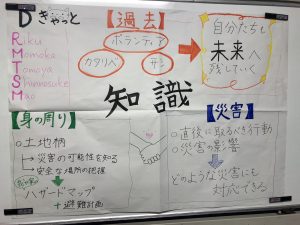 Dきゃっと
Riku
Momoka
Tomoya
Shunnosuke
Mao
【過去】
ボランティア
カタリベ
自分たちも
未来へ
残していく
知識
【身の周り】
○土地柄
↳災害の可能性を知る
→安全な場所の把握
ハザードマップ
+避難計画
【災害】
○直後に取るべき行動
○災害の影響
どのような災害にも
対応できる